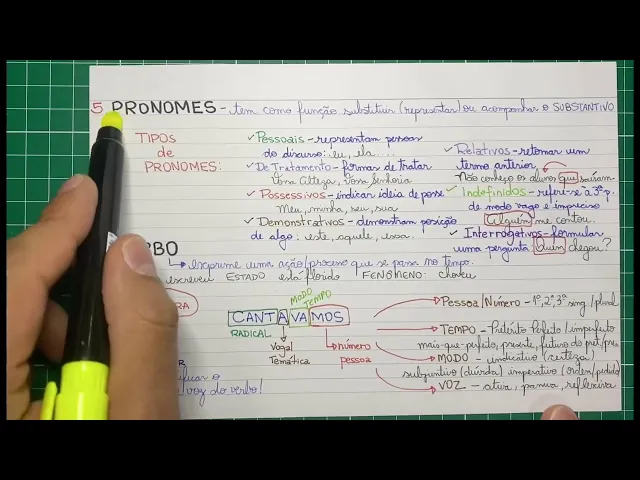 5 PRONOMES - tem como função substituir (representar) ou acompanhar o SUBSTANTIVO
TIPOS
de
PRONOMES:
✓ Pessoais - representam pessoas
do discurso: eu, ela....
✓ De Tratamento - formas de tratar
Vossa Alteza, Vossa Senhoria
✓ Possessivos - indicar ideia de posse
Meu, minha, seu, sua
✓ Demonstrativos - demonstram posição
de algo: este, aquele, essa.
✓ Relativos - retomar um
termo anterior.
Não conheço os alunos que saíram
✓ Indefinidos - refere-se à 3ª p.
de modo vago e impreciso
Alguém me contou.
✓ Interrogativos - formular
uma pergunta Quem chegou?
RBO
exprime uma ação/processo que se passa no tempo.
escreveu ESTADO está florido FENÔMENO: choveu
RA
MODO
TEMPO
CANTAVAMOS
RADICAL
Vogal
Temática
número
pessoa
Pessoa/Número - 1ª, 2ª, 3ª sing/plural
TEMPO - Pretérito Perfeito/imperfeito
mais-que-perfeito, presente, futuro do pret/pres
MODO - indicativo (certeza)
subjuntivo (dúvida) imperativo (ordem/pedido)
VOZ - ativa, passiva, reflexiva
ficar o
/voz do verbo!